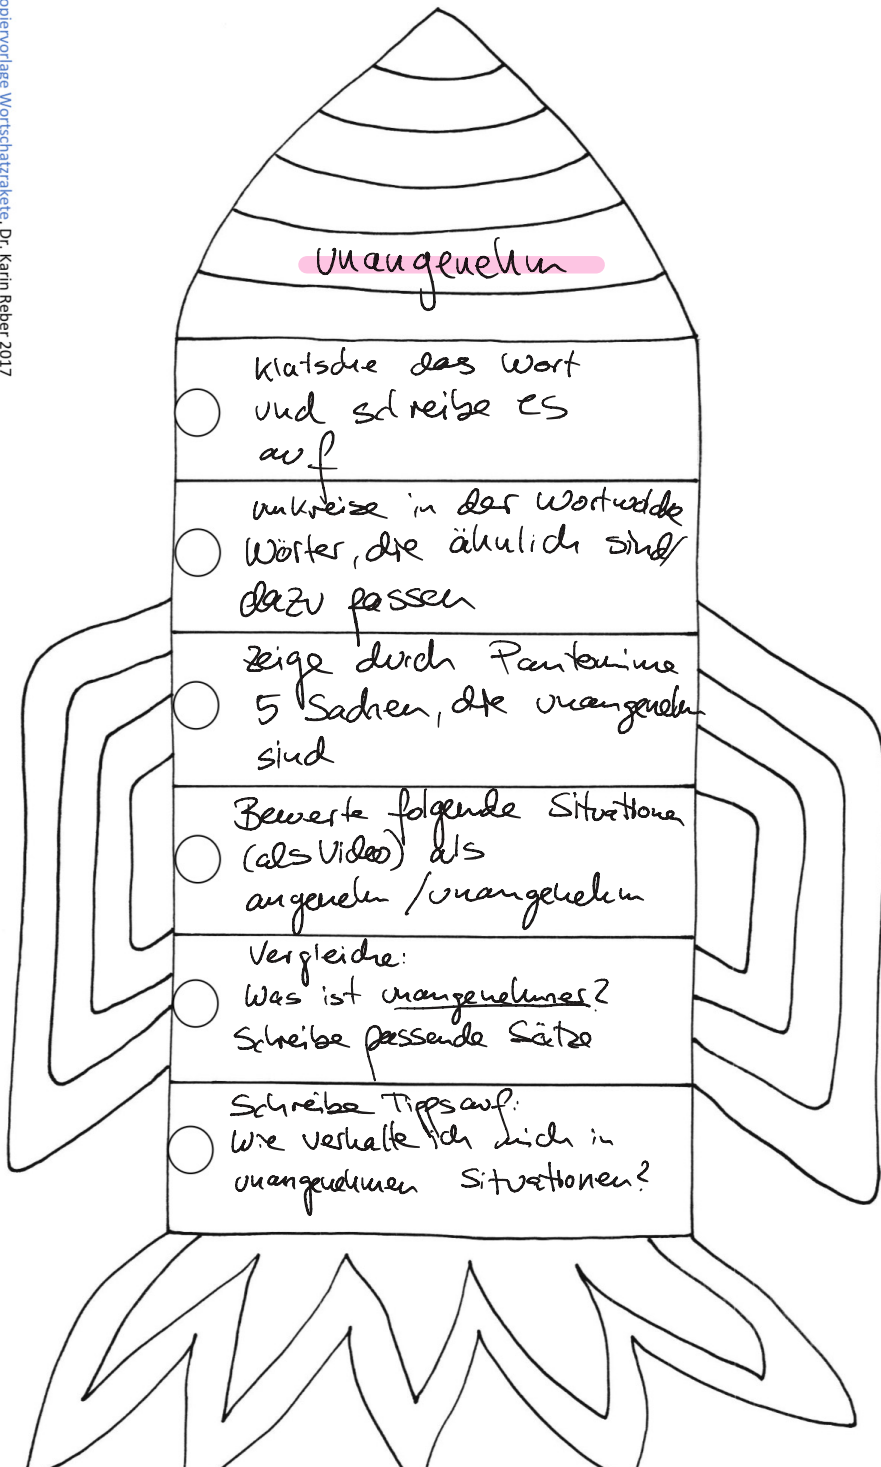 opiervorlage Wortschatzrakete, Dr. Karin Reber 2017
unangenehm
Klatsche das Wort
und schreibe es
auf
umkreise in der Wortwolke
Wörter, die ähnlich sind/
dazu passen
Zeige durch Pantomime
5 Sachen, die unangenehm
sind
Bewerte folgende Situationen
(als Video) als
angenehm / unangenehm
Vergleiche:
Was ist unangenehmer?
Schreibe passende Sätze
Schreibe Tipps auf:
Wie verhalte ich mich in
unangenehmen Situationen?